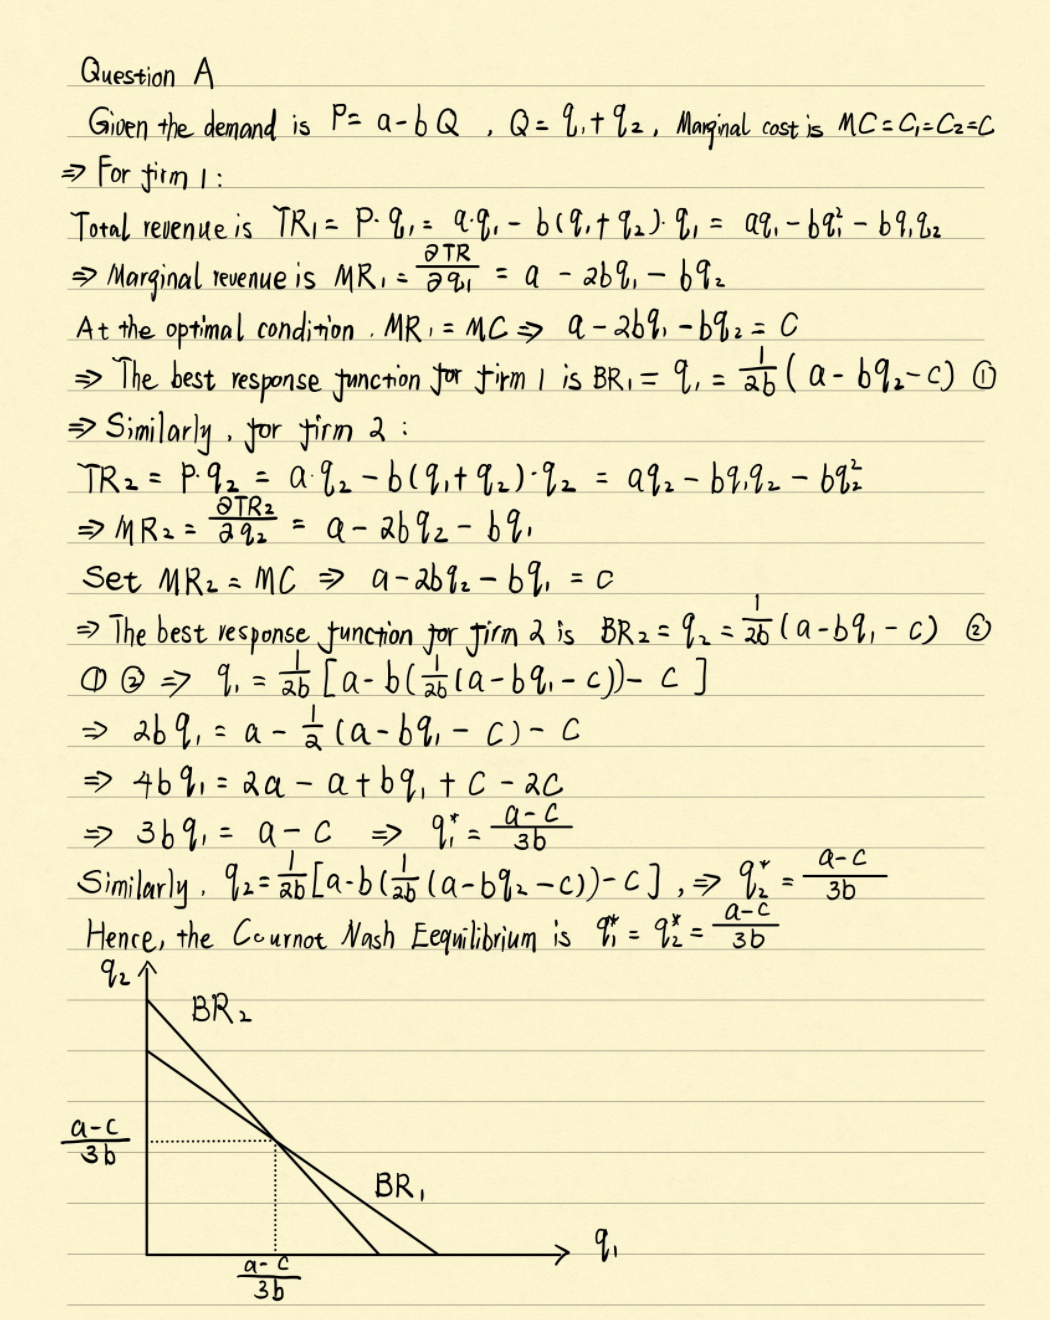 Question A
Given the demand is P= a-bQ , Q= q₁+q₂, Marginal cost is MC=C₁=C₂=C
⇒ For firm 1:
Total revenue is TR₁= P·q₁= a·q₁- b(q₁+q₂)·q₁ = aq₁-bq₁²-bq₁q₂
⇒ Marginal revenue is MR₁ = ∂TR/∂q₁ = a - 2bq₁ - bq₂
At the optimal condition. MR₁=MC ⇒ a-2bq₁-bq₂=C
⇒ The best response function for firm 1 is BR₁= q₁= 1/2b(a-bq₂-c) ①
⇒ Similarly, for firm 2:
TR₂ = P·q₂ = a·q₂-b(q₁+q₂)·q₂ = aq₂-bq₁q₂-bq₂²
⇒ MR₂ = ∂TR₂/∂q₂ = a-2bq₂-bq₁
Set MR₂=MC ⇒ a-2bq₂-bq₁ = c
⇒ The best response function for firm 2 is BR₂=q₂=1/2b(a-bq₁-c) ②
① ② ⇒ q₁ = 1/2b[a-b(1/2b(a-bq₁-c))-c]
⇒ 2bq₁ = a-1/2(a-bq₁-c)-c
⇒ 4bq₁=2a-a+bq₁+c-2c
⇒ 3bq₁= a-c ⇒ q₁*= a-c/3b
Similarly. q₂=1/2b[a-b(1/2b(a-bq₂-c))-c], ⇒ q₂*= a-c/3b
Hence, the Cournot Nash Eequilibrium is q₁*=q₂*= a-c/3b
q₂
BR₂
a-c/3b
BR₁
q₁
a-c/3b